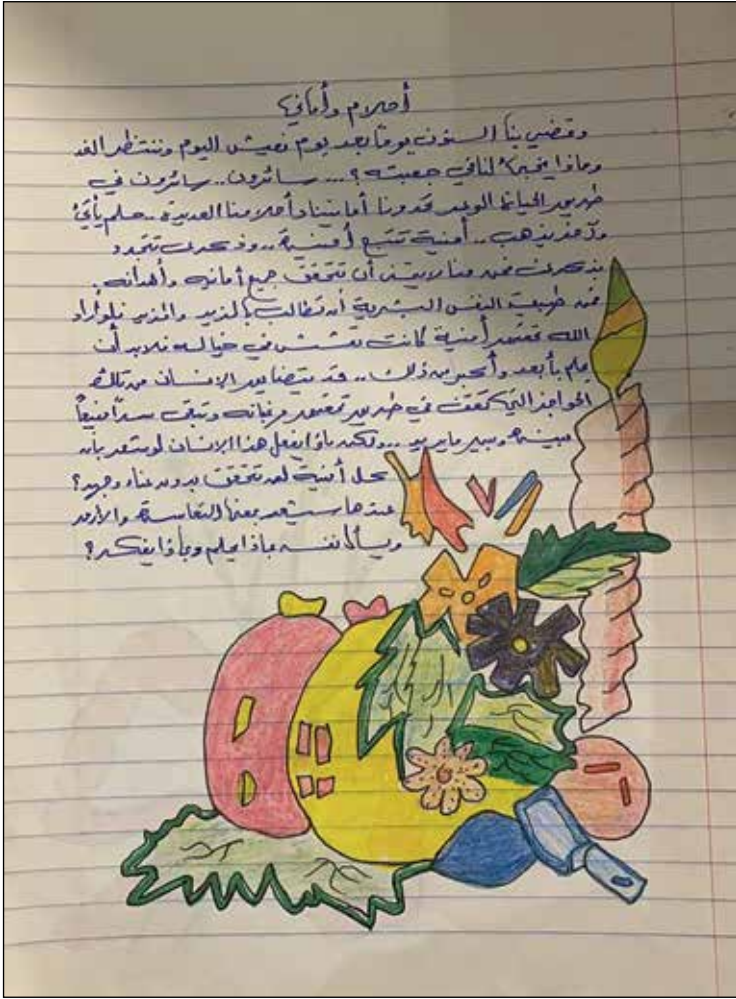 أحلام وأماني
وتمضي بنا السنون يوماً بعد يوم نعيش اليوم وننتظر الغد
وماذا يخبئ لنا في جعبته ؟ ... سائرون .. سائرون في
طريق الحياة الوعر تحدونا أمانينا وأحلامنا العديدة .. حلم يأتي
وآخر يذهب .. أمنية تتبع أمنية .. وذكرى تتجدد
بذكرى فمن منا لا يتمنى أن تتحقق جميع أمانيه وأهدافه .
فمن طبيعة النفس البشرية أن تطالب بالمزيد والمزيد فلو أراد
الله تحقيق أمنية كانت تعشش في خياله فلا بد أن
يحلم بأبعد وأكبر من ذلك .. قد يتضايق الإنسان من تلك
الحواجز التي تقف في طريق تحقيق رغباته وتبقى سداً منيعاً
بينه وبين ما يريد ... ولكن ماذا يفعل هذا الإنسان لو شعر بأن
كل أمنية له تتحقق بدون عناء وجهد ؟
عندها سيشعر بمعنى التعاسة
ويسأل نفسه بماذا يحلم وبماذا يفكر ؟